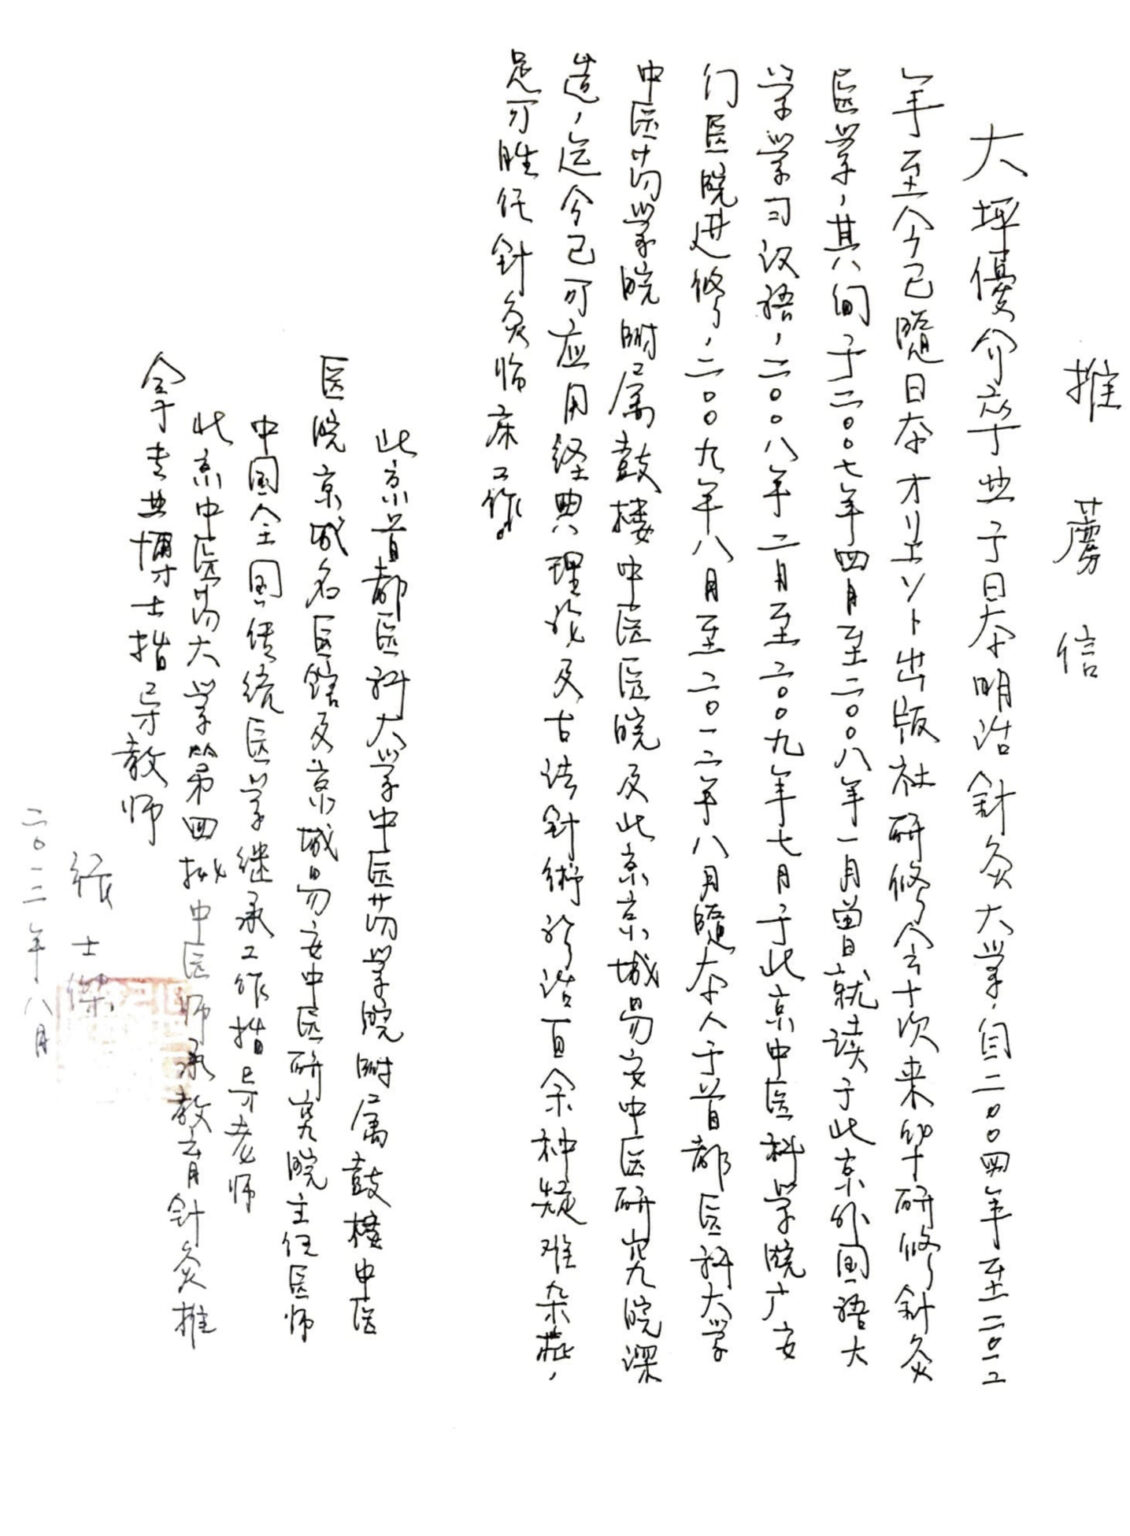 推薦信
大坪優介卒业于日本明治針灸大学，自二〇〇四年至二〇一二
年至今已随日本オリエント出版社研修会十次来华研修針灸
医学，其间于二〇〇七年四月至二〇〇八年一月曾就读于北京外国语大
学学习汉语，二〇〇八年二月至二〇〇九年七月于北京中医科学院广安
们医院进修，二〇〇九年八月至二〇一二年八月随本人于首都医科大学
中医药学院附属鼓楼中医医院及北京京城易安中医研究院深
造，迄今已可应用经典理论及古法針術診治百余种疑难杂症，
足可胜任針灸临床工作。
北京首都医科大学中医药学院附属鼓楼中医
医院京城名医馆及京城易安中医研究院主任医师
中国全国传统医学继承工作指导老师
北京中医药大学第四批中医师承教育針灸推
拿专业博士指导教师
張士傑
二〇一二年八月